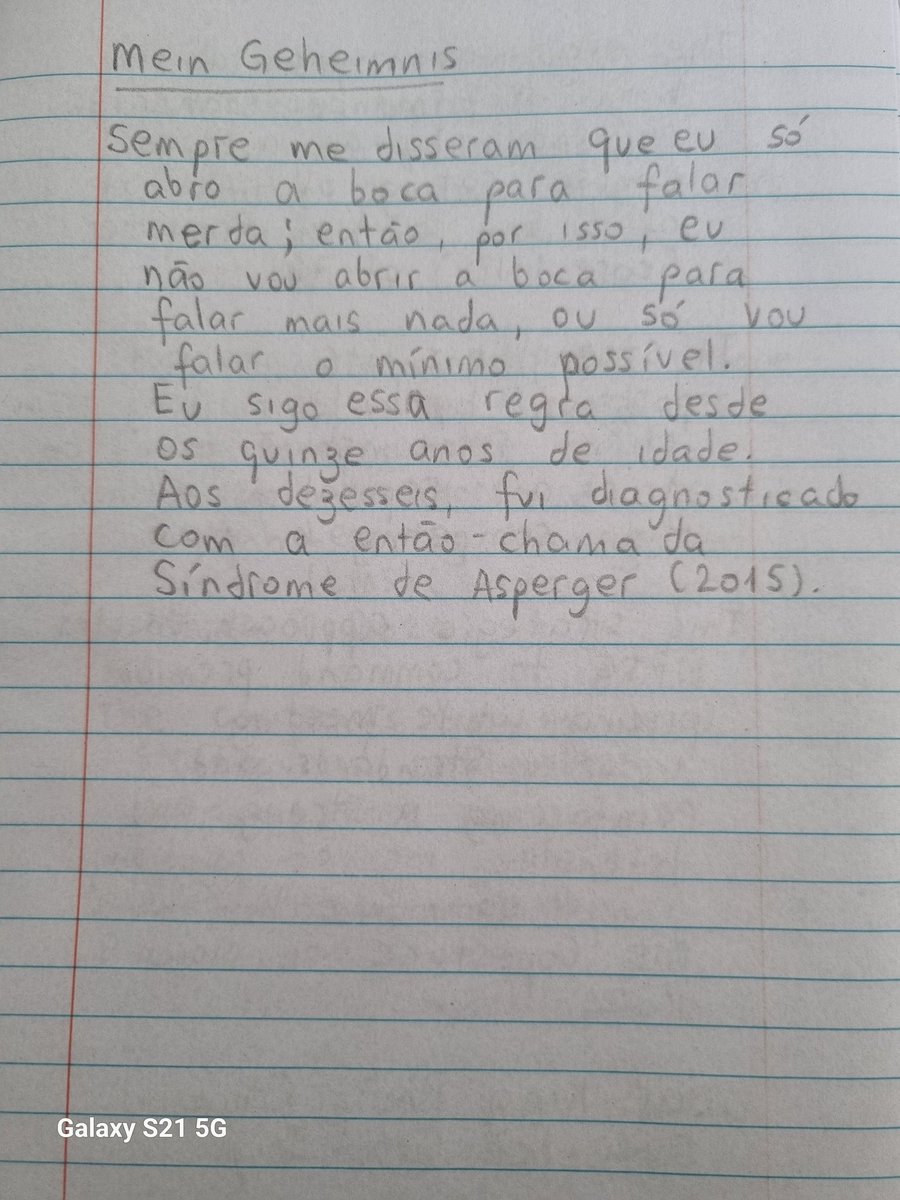 Mein Geheimnis
Sempre me disseram que eu só
abro a boca para falar
merda; então, por isso, eu
não vou abrir a boca para
falar mais nada, ou só vou
falar o mínimo possível.
Eu sigo essa regra desde
os quinze anos de idade.
Aos dezesseis, fui diagnosticado
com a então-chamada
Síndrome de Asperger (2015).
Galaxy S21 5G